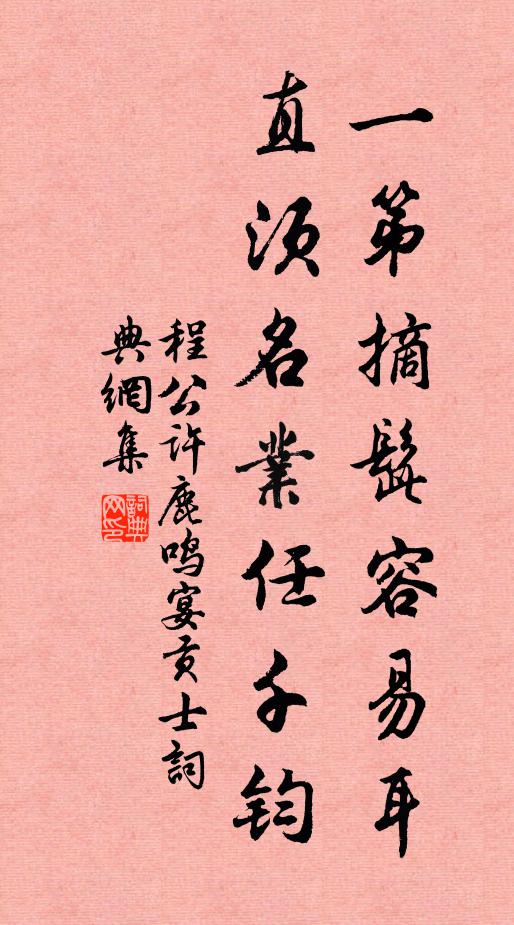 一第摘髭容易耳
直须名業任千钧
程公许鹿鸣宴贡士詞
典網集
詞典网印